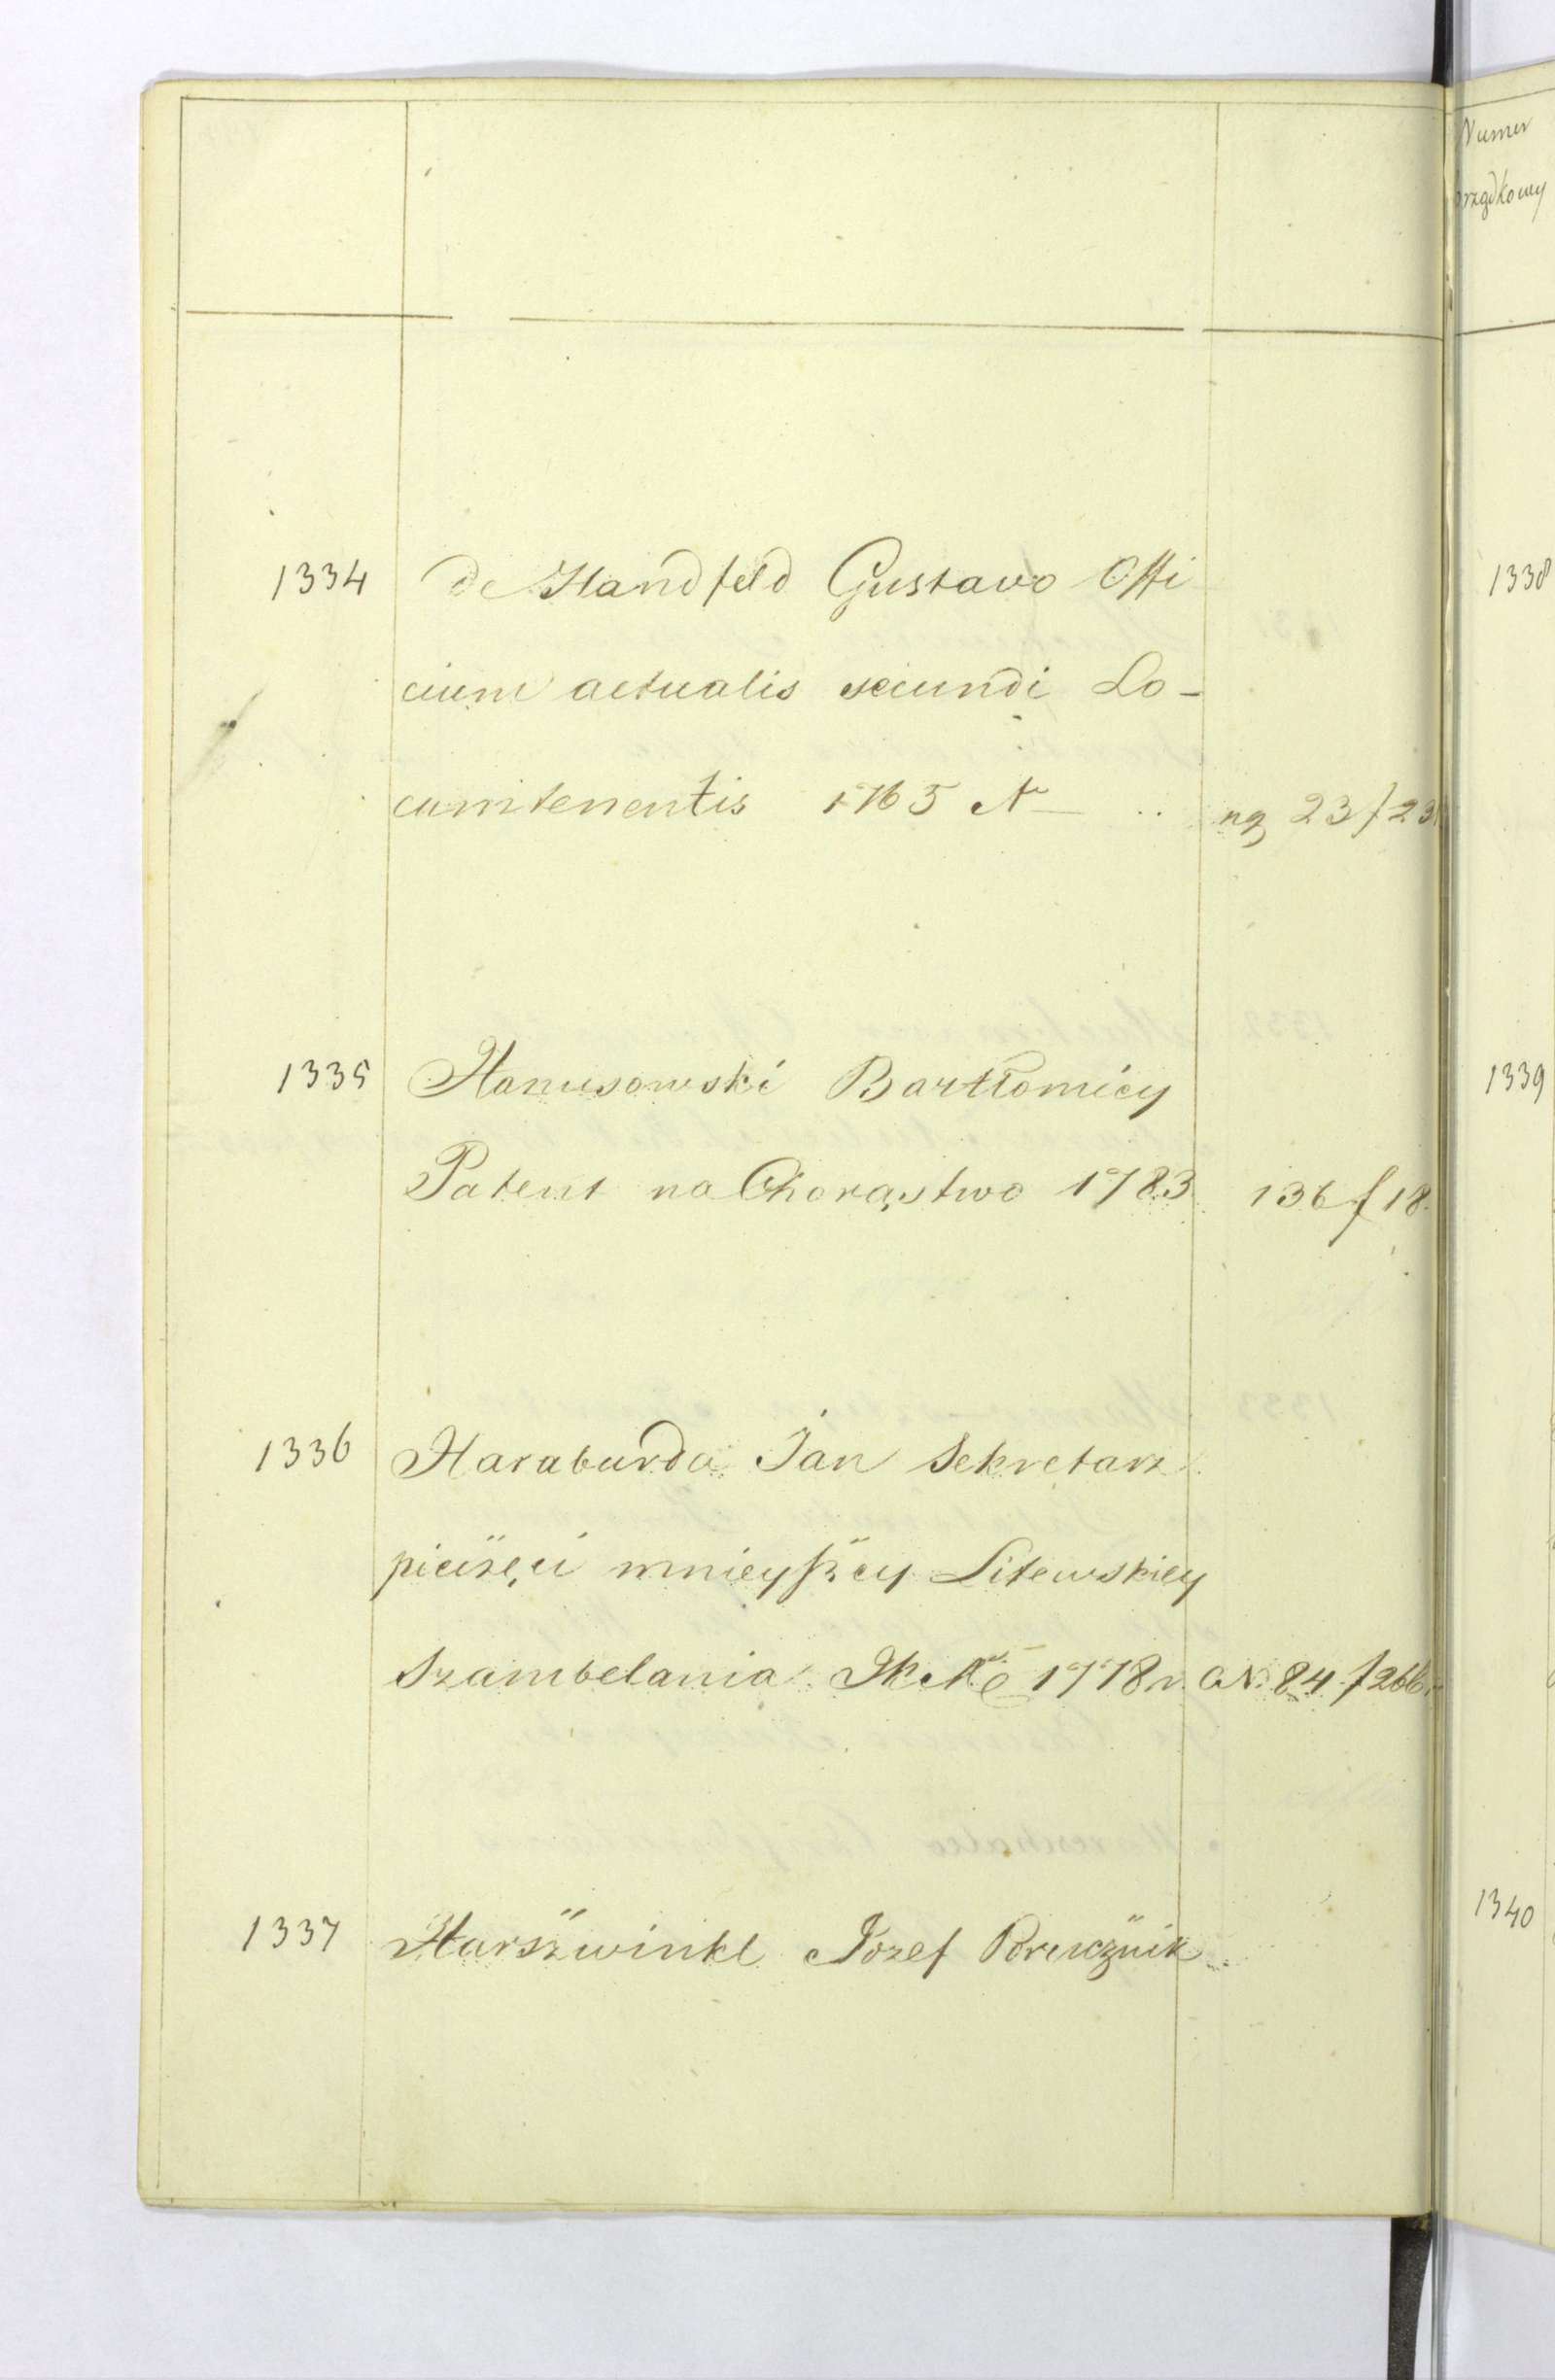 1334 de Handfeld Gustavo Offi
cium actualis secundi Lo-
cumtenentis 1765 N — .. ng 23 f 23
1335 Hanusowski Bartłomiey
Patent na Chorąstwo 1783 136 f 18.
1336 Haraburda Jan Sekretarz
pieczęci mnieyszey Litewskiey
Szambelania 1778 r. N. 84 f 266
1337 Harszwinkl Jozef Porucznik
Numer
porządkowy
1338
1339
1340